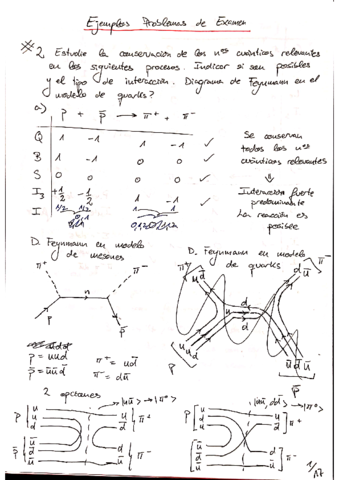 Ejemplos Problemas de Examen
#2 Estudie la conservación de los nos cuánticos relevantes
en los siguientes procesos. Indicar si son posibles
y el tipo de interacción. Diagrama de Feynmann en el
modelo de quarks?
a) p + p̄ → π+ + π-
Q 1 -1 1 -1 ✓
B 1 -1 0 0 ✓
S 0 0 0 0 ✓
I3 +1/2 -1/2 1 -1 ✓
I 1/2 1/2 1 1 ✓
Se conservan
todos los nos
cuánticos relevantes
⇓
Interacción fuerte
predominante
La reacción es
posible
D. Feynmann en modelo
de mesones
π+ π-
n
p p̄
D. Feynmann en modelo
de quarks
π+ u d̄
d ū π-
d
d
u u d
p
ū d̄ ū
p̄
p = uud
p̄ = ūūd̄
π+ = ud̄
π- = dū
2 opciones
|uū> → |π°>
p u u d
u d̄ π+
p̄ ū d̄ ū
d ū π-
|uū, dd̄> → |π°>
p u u d
u d̄ π+
p̄ ū d̄ ū
d ū π-
1/17